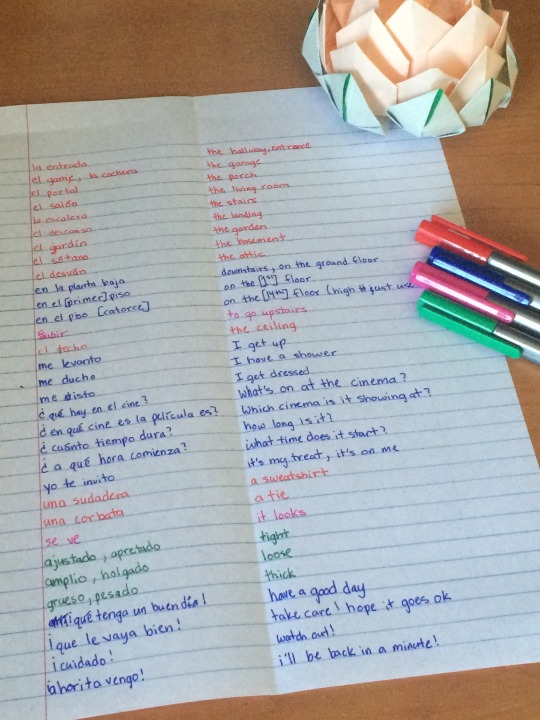 la entrada the hallway, entrance
el garaje, la cochera the garage
el portal the porch
el salón the living room
la escalera the stairs
el descanso the landing
el jardín the garden
el sótano the basement
el desván the attic
en la planta baja downstairs, on the ground floor
en el [primer] piso on the [1st] floor
en el piso [catorce] on the [14th] floor (high # just use
subir to go upstairs
el techo the ceiling
me levanto I get up
me ducho I have a shower
me visto I get dressed
¿qué hay en el cine? what's on at the cinema?
¿en qué cine es la película es? Which cinema is it showing at?
¿cuánto tiempo dura? how long is it?
¿a qué hora comienza? what time does it start?
yo te invito it's my treat, it's on me
una sudadera a sweatshirt
una corbata a tie
se ve it looks
ajustado, apretado tight
amplio, holgado loose
grueso, pesado thick
¡qué tenga un buen día! have a good day
¡que le vaya bien! take care! hope it goes ok
¡cuidado! watch out!
¡ahorita vengo! i'll be back in a minute!